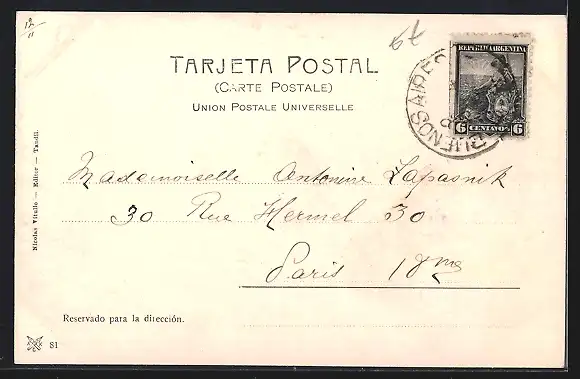 TARJETA POSTAL
(CARTE POSTALE)
UNION POSTALE UNIVERSELLE
REPUBLICA ARGENTINA
6 CENTAVOS 6
BUENOS AIRES
Nicolas Vitullo — Editor — Tandil.
Mademoiselle Antonine Lapasnik
30 Rue Hermel 30
Paris 18me
Reservado para la dirección.
81